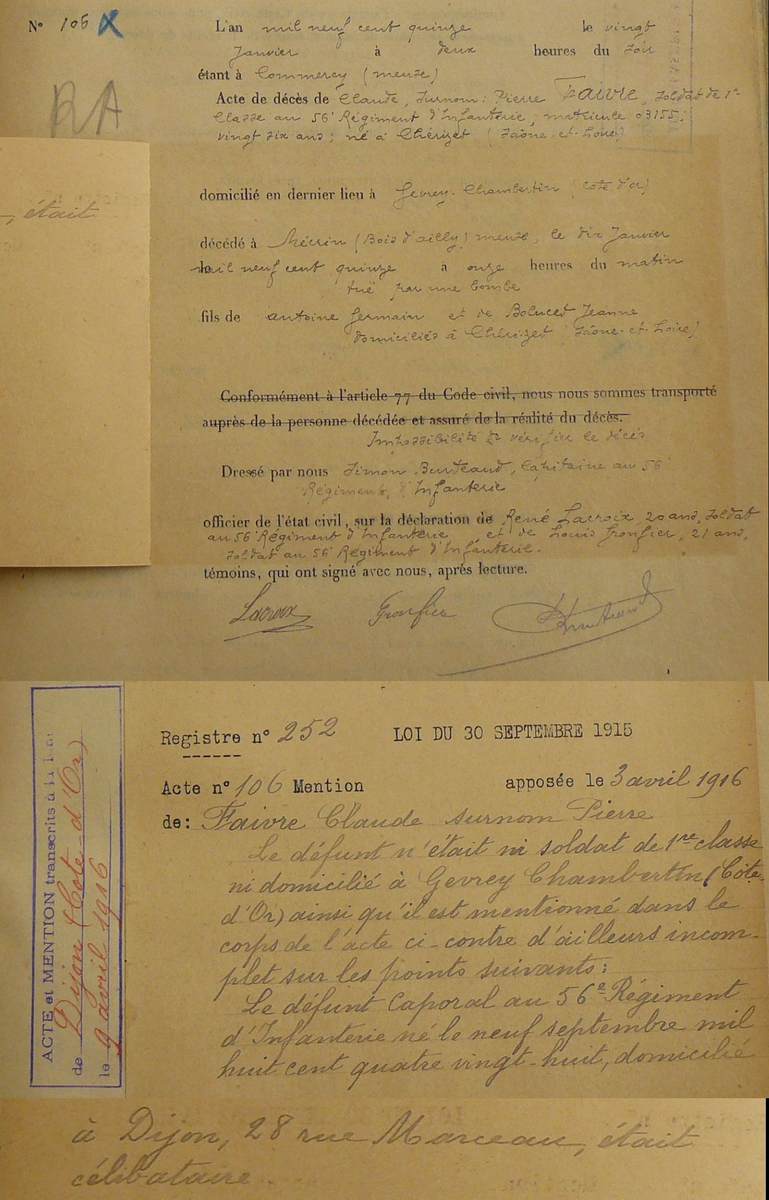 N° 106 X
L'an mil neuf cent quinze le vingt
Janvier à deux heures du soir
étant à Commercy (meuse)
RA
Acte de décès de Claude, surnom: Pierre Faivre, soldat de 1e
Classe au 56e Régiment d'Infanterie, matricule 03155,
vingt six ans; né à Chérizet (Saône-et-Loire)
domicilié en dernier lieu à Gevrey-Chambertin (Côte d'or)
, était
décédé à Mécrin (Bois d'ailly) meuse, le dix Janvier
mil neuf cent quinze à onze heures du matin
tué par une bombe
fils de antoine Germain et de Jeanne
domiciliés à Chérizet (Saône-et-Loire)
Conformément à l'article 77 du Code civil, nous nous sommes transporté
auprès de la personne décédée et assuré de la réalité du décès.
Impossibilité de vérifier le décès
Dressé par nous Simon, Capitaine au 56e
Régiment d'Infanterie
officier de l'état civil, sur la déclaration de René Lacroix, 20 ans, soldat
au 56e Régiment d'Infanterie et de Louis Gronfier, 21 ans,
soldat au 56e Régiment d'Infanterie.
témoins, qui ont signé avec nous, aprés lecture.
Lacroix Gronfier
Registre n° 252 LOI DU 30 SEPTEMBRE 1915
Acte n° 106 Mention apposée le 3 avril 1916
de: Faivre Claude surnom Pierre
Le défunt n'était ni soldat de 1re classe
ni domicilié à Gevrey Chambertin (Côte
d'Or) ainsi qu'il est mentionné dans le
corps de l'acte ci-contre d'ailleurs incom-
plet sur les points suivants:
Le défunt Caporal au 56e Régiment
d'Infanterie né le neuf septembre mil
huit cent quatre vingt-huit, domicilié
à Dijon, 28 rue Marceau, était
célibataire
ACTE et MENTION transcrits à la
de Dijon (Côte d'Or)
le 9 avril 1916